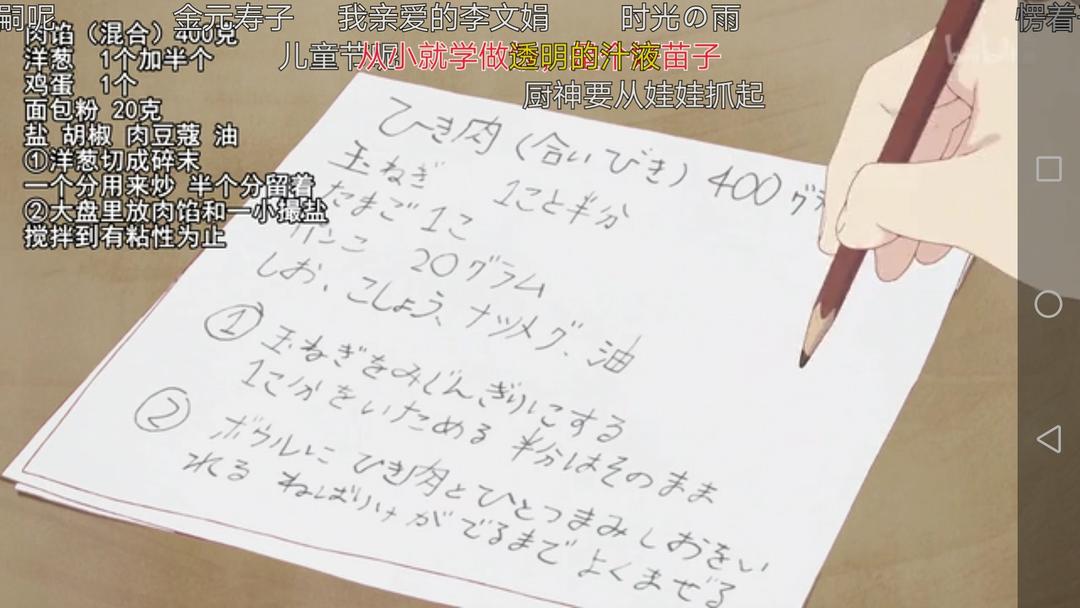 嗣呢 金元寿子 我亲爱的李文娟 时光の雨 愣着
肉馅（混合）400克
儿童节 从小就学做 透明的汁液 苗子
洋葱 1个加半个
鸡蛋 1个
厨神要从娃娃抓起
面包粉 20克
盐 胡椒 肉豆蔻 油
①洋葱切成碎末
一个分用来炒 半个分留着
②大盘里放肉馅和一小撮盐
搅拌到有粘性为止
bilibili
ひき肉（合いびき）400グラ
玉ねぎ 1こと半分
たまご 1こ
パンこ 20グラム
しお、こしょう、ナツメグ、油
① 玉ねぎをみじんぎりにする
1こ分をいためる 半分はそのまま
② ボウルに ひき肉とひとつまみしおをい
れる ねばりけがでるまでよくまぜる